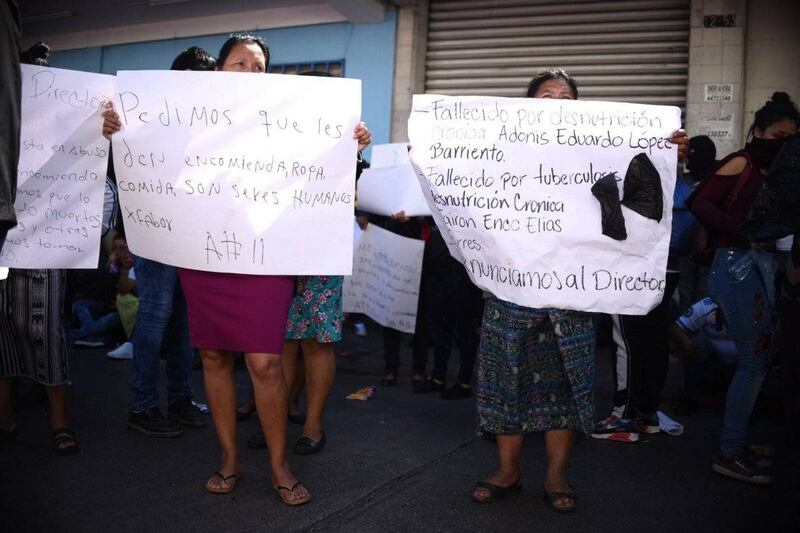 Director
esta en Abuso
encomienda
mos que lo
lo muertos
s y otras
tomar
Pedimos que les
den encomienda, ropa,
comida, son seres humanos
xfabor
A#11
- Fallecido por desnutrición
Crónica Adonis Eduardo López
Barriento.
- Fallecido, por tuberculosis
desnutrición Cronica
Enoc Elias
nunciamos al Director
12-53